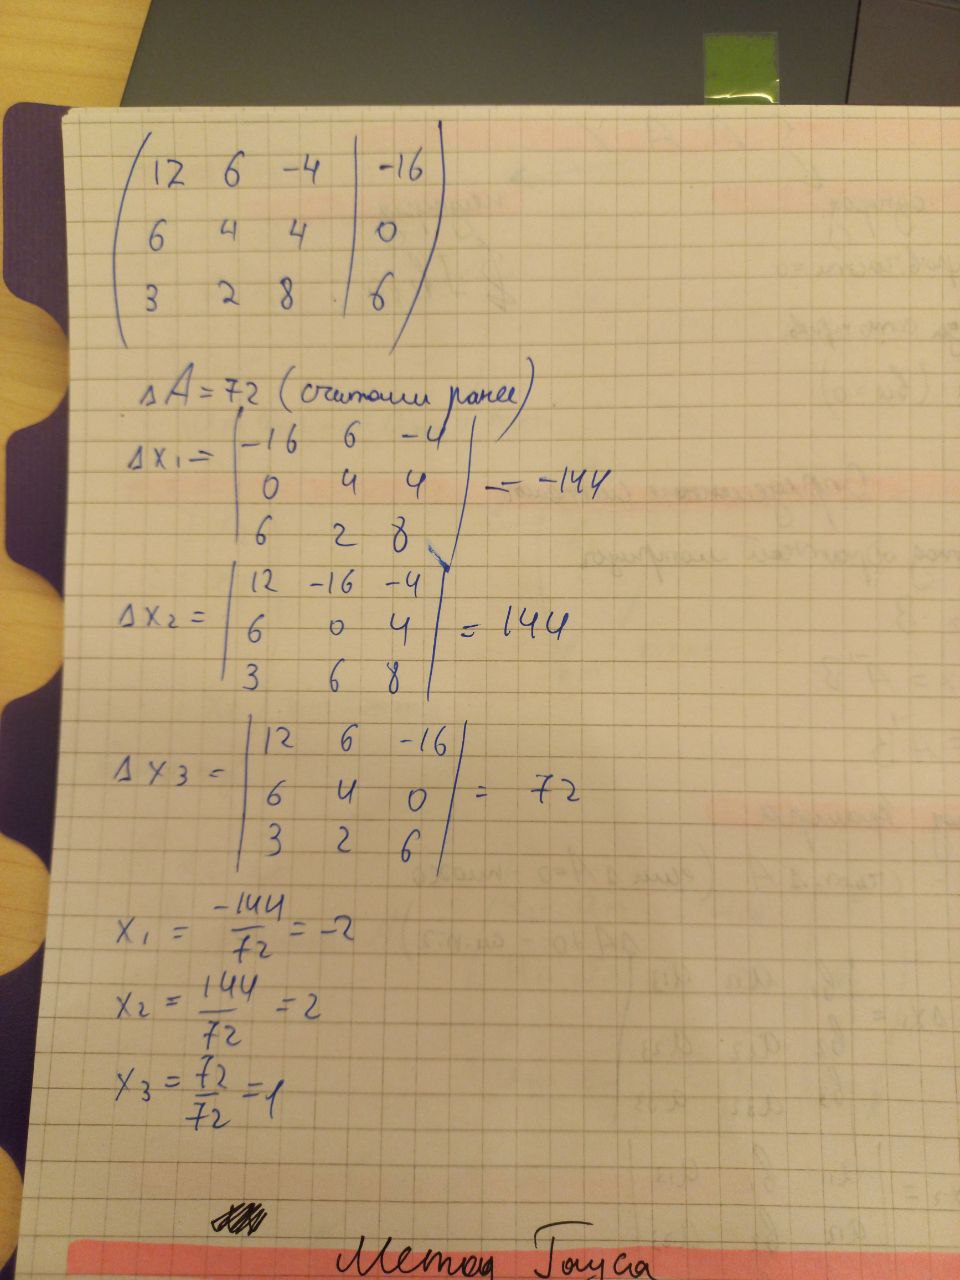 12 6 -4 | -16
6 4 4 | 0
3 2 8 | 6
ΔA = 72 (считали ранее)
Δx₁ = | -16 6 -4 |
| 0 4 4 | = -144
| 6 2 8 |
Δx₂ = | 12 -16 -4 |
| 6 0 4 | = 144
| 3 6 8 |
Δx₃ = | 12 6 -16 |
| 6 4 0 | = 72
| 3 2 6 |
x₁ = -144/72 = -2
x₂ = 144/72 = 2
x₃ = 72/72 = 1
Метод Гауса